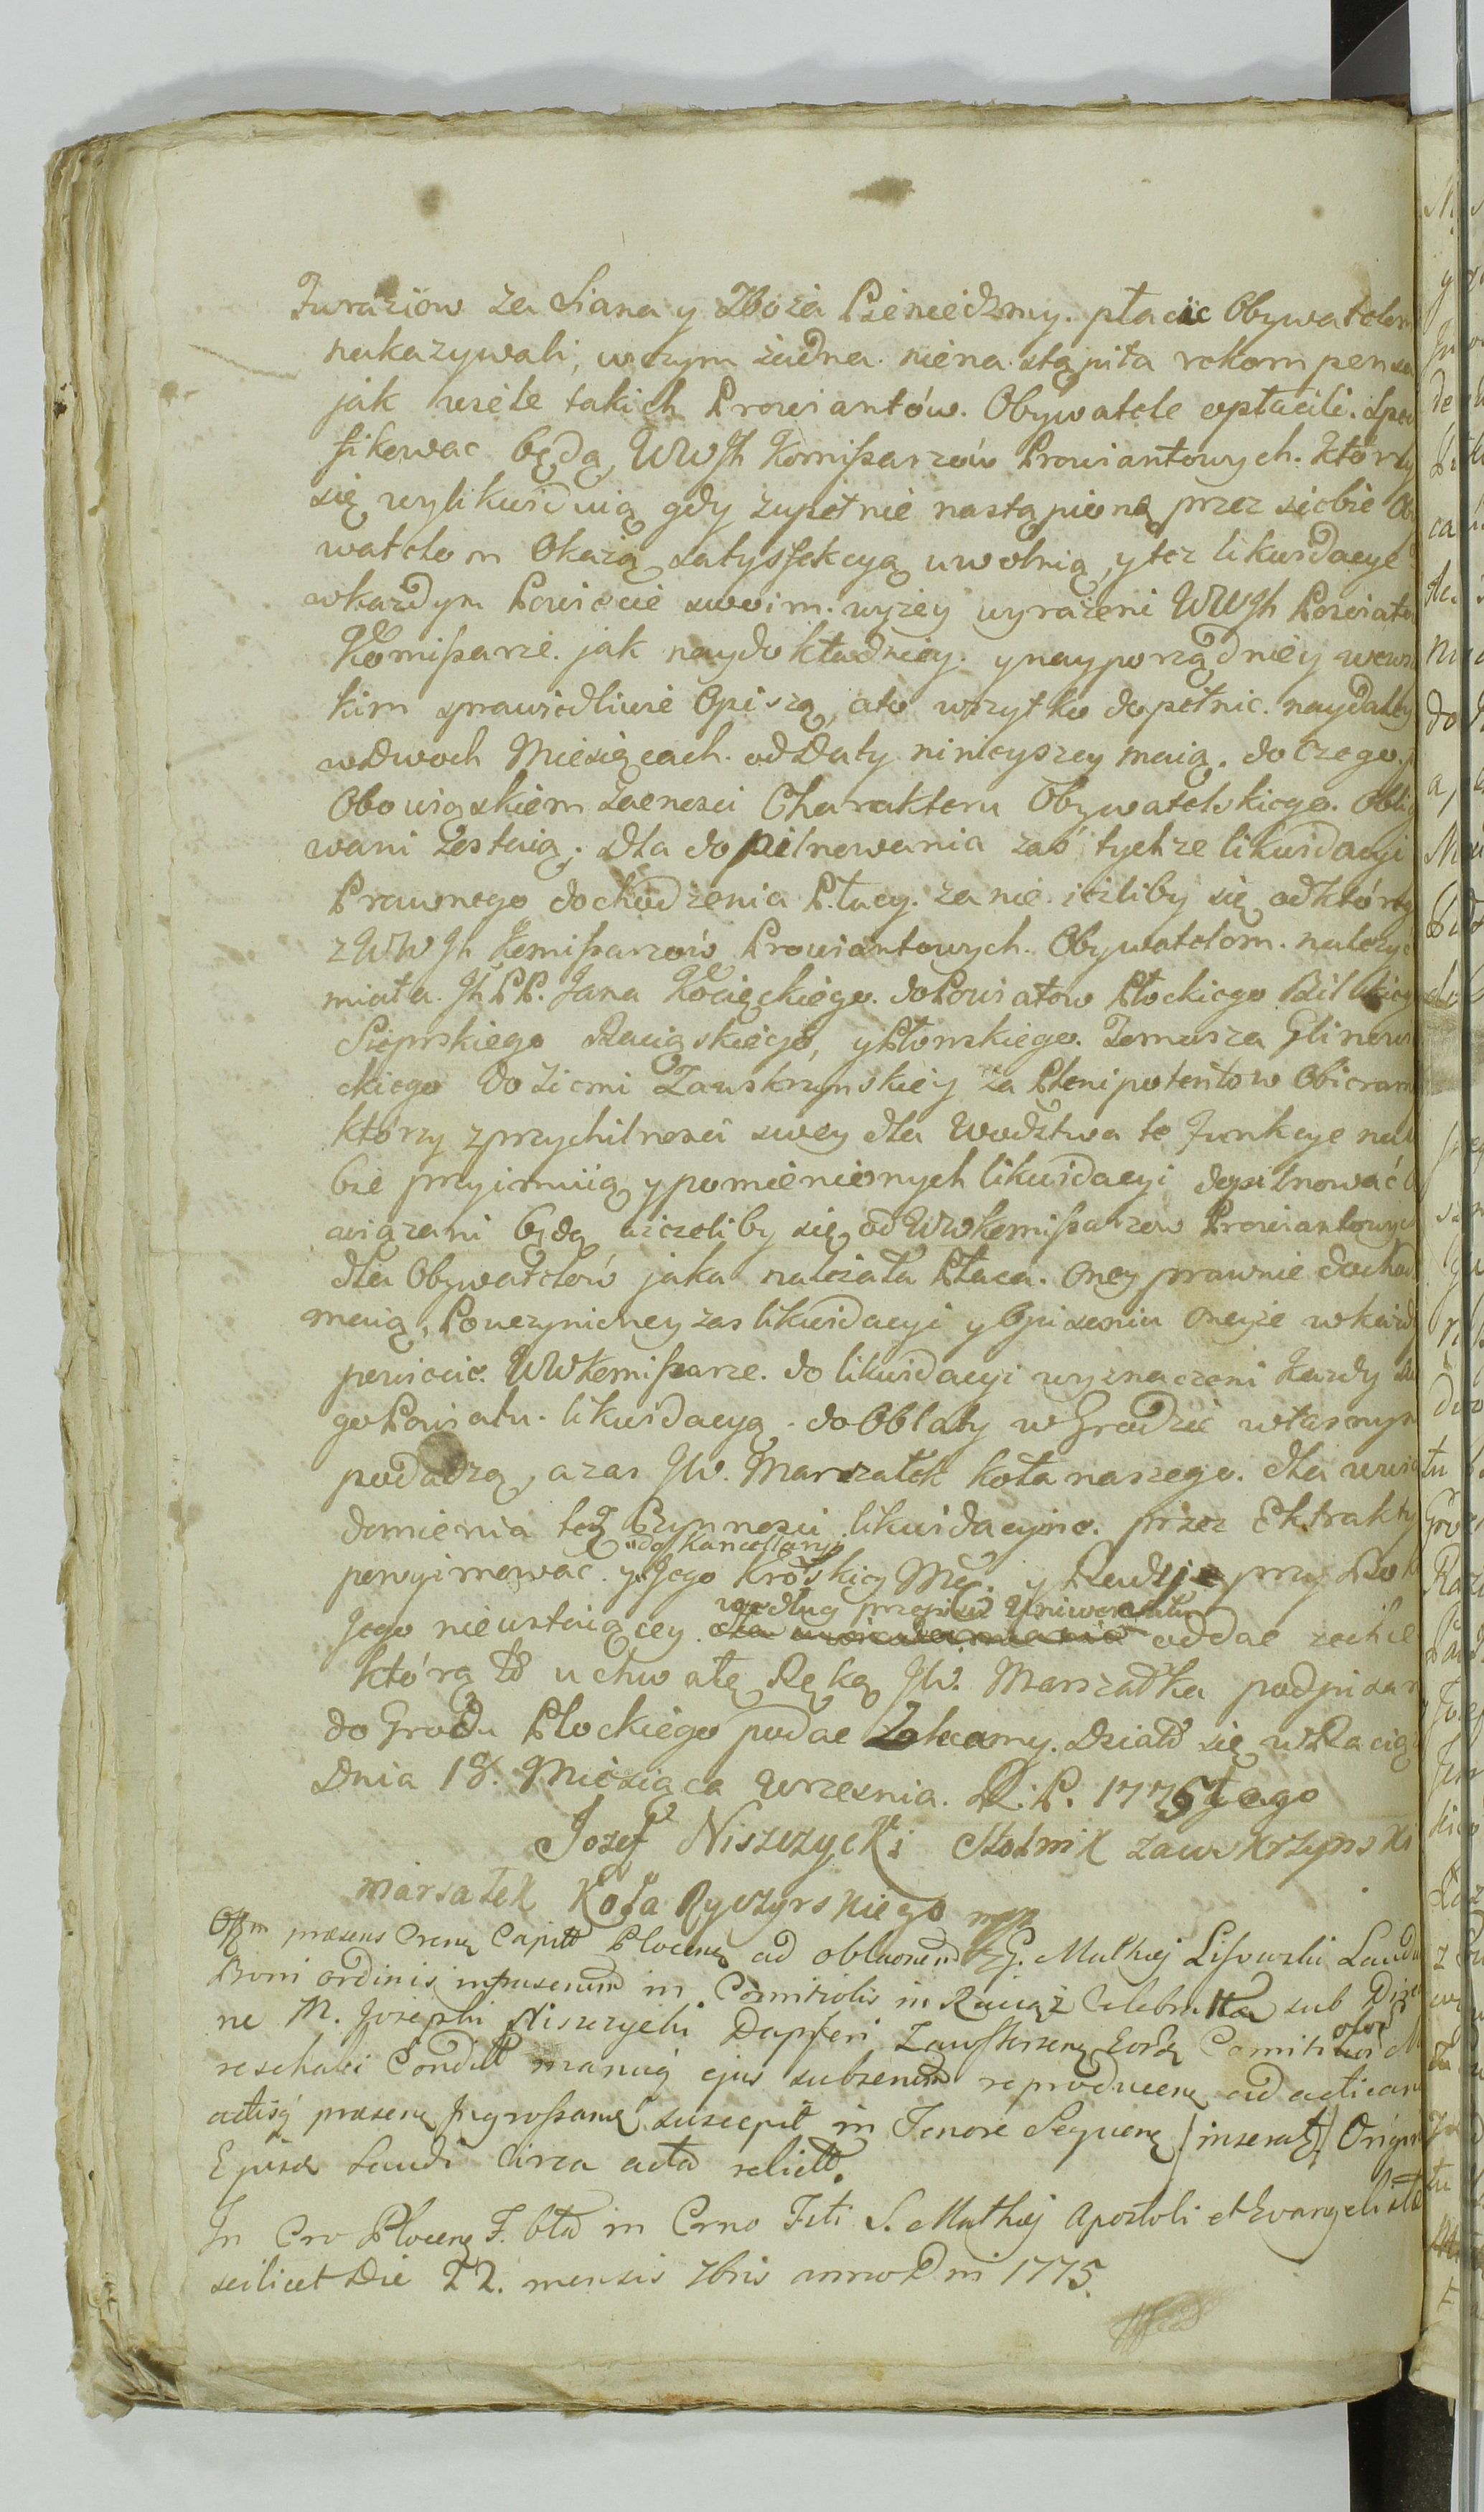 Furazïow za Siana y Zboża Pieniedzmy. płacić Obywatelom
nakazywali, wczym żadna nienastąpiła rekompensa
jak wiele takich Prowiantów. Obywatele opłacili. Spe
fikować będą WWJh Komißarzów Prowiantowych. którzy
się wylikwiduią gdy zupełnie nastąpioną przez siebie Ob
watelom Okażą satysfakcyą uwolnią, y też likwidacye
wkażdym Powiecie swoim. wyżey wyrażeni WWJh Powiato
Komißarze. jak naydokładniey. y nayporządniey wewsz
kim sprawiedliwie Opiszą, ato wszytko dopełnić. naydaley
wdwoch Miesiącach. od Daty ninieyszey maią. do czego.
Obowiąskiem Zacnosci Charakteru Obywatelskiego. Oblig
wani Zostaią; Dla dopilnowania zaś tychże likwidacyi
Prawnego dochodzenia Płacy. za nie. ieżliby się od który
z WWJh Komißarzów Prowiantowych. Obywatelom. należyc
miała. Jh PP. Jana Kocięckiego. do Powiatow Płockiego Bilskieg
Sieprskiego Raciąskiego, y Płonskiego. Tomasza Glinow
ckiego do Ziemi Zawskrzynskiey za Plenipotentow Obieram
którzy zprzychilnosci swey dla Wodztwa te Funkcye na
bie przyimuią y pomienionych likwidacyi dopilnować
wiązani będą aieżeliby się od WWKomißarzow Prowiantowych
dla Obywatelów jaka należała Płaca. Oney prawnie dochod
maią, Pouczynioney zas likwidacyi y Opisaniu Oneyże wkażd
powiecie. WWKomißarze. do likwidacyi wyznaczeni każdy sw
go Powiatu. likwidacyą. do Oblaty w Grodzie własnym
podadzą, a zas JW. Marszałek Koła naszego. dla uwia
domienia tey Czynnosci likwidacyine. przez Extrakty
powyimować. do Kancellaryi y Jego Królskiey Mci. y Radzie przy Bok
Jego nieustaiącey według przepisu Uniwersału oddać zechce
którą to uchwałę Ręką JW. Marszałka podpisan
do Grodu Płockiego podać Zlecamy. Działo się w Raciąz
Dnia 18. Miesiąca Wrzesnia. R: P. 1775tego
Jozef Niszczycki Stolnik zawskrzynski
marsałek Koła Rycyrskiego mpp
Offm præsens Crense Capitt Plocense ad oblaonem G. Mathiej Lisowski Laud
Boni ordinis infrascrum in Comitiolis in Raciąż Celebratta sub Dire
ne M. Josephi Niszczycki Dapiferi Zawskrzens Eord Comitiolor M
reschalci Condit manuq ejus subscrum reproducens ad acticand
actisq præsens Ingrossand suscepit in Tenore Sequens (inserat) Origin
Ejusd Laudi circa acta relictt.
In Cro Plocens F. bta in Crno Festi S. Mathæj Apostoli et Evangelistæ
scilicet Die 22. mensis 7bris anno Dni 1775.